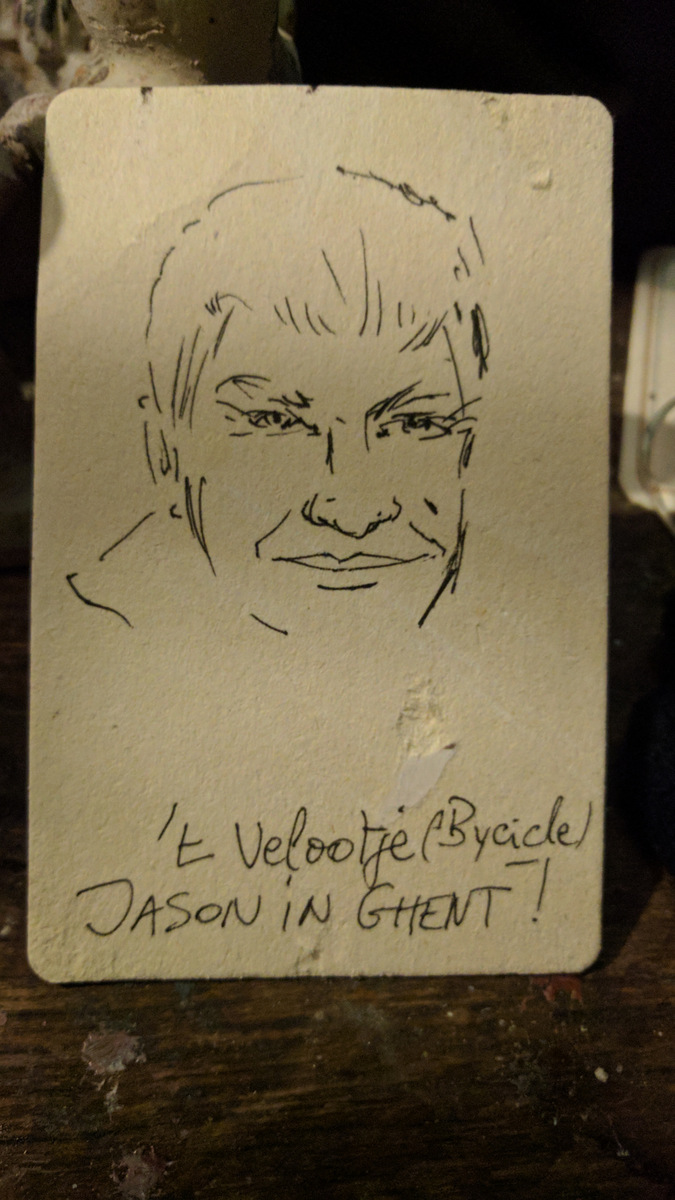 't Velootje (Bycicle)
JASON iN GHENT !